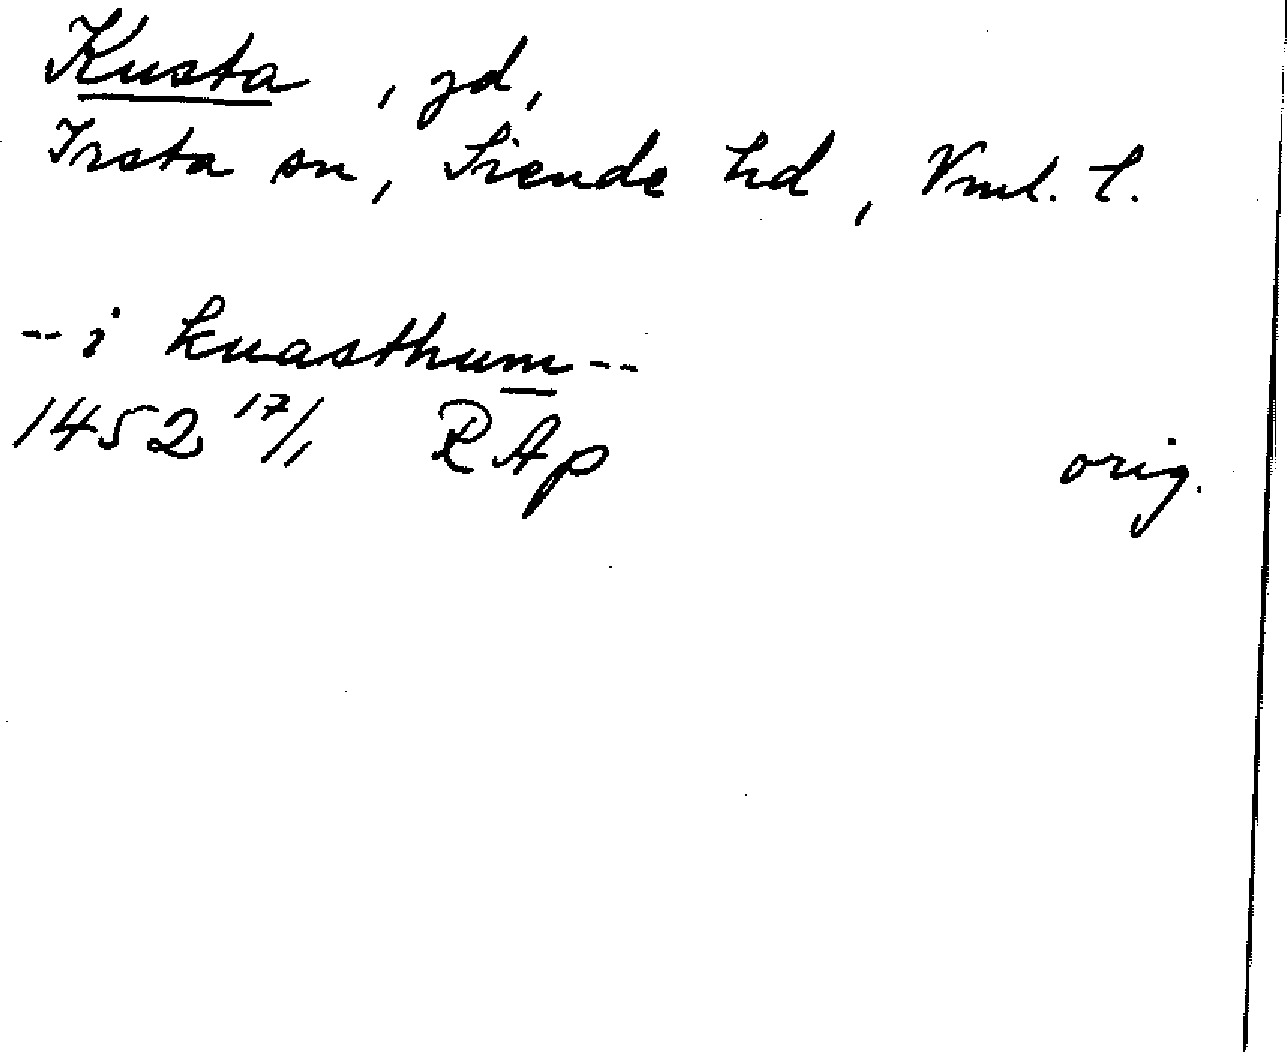 Kusta, gd,
Irsta sn, Siende hd, Vml. l.
-- i kuasthum --
1452 17/1 RAp orig.